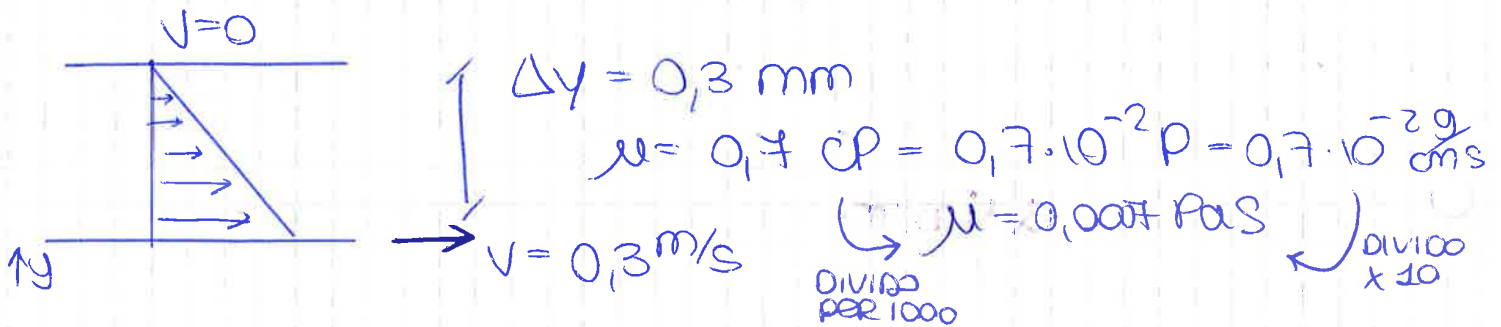 V=0
Δy = 0,3 mm
μ = 0,7 cP = 0,7·10⁻² P = 0,7·10⁻² g/cm s
μ = 0,0007 Pa s
DIVIDO PER 1000
DIVIDO X 10
V = 0,3 m/s
↑y